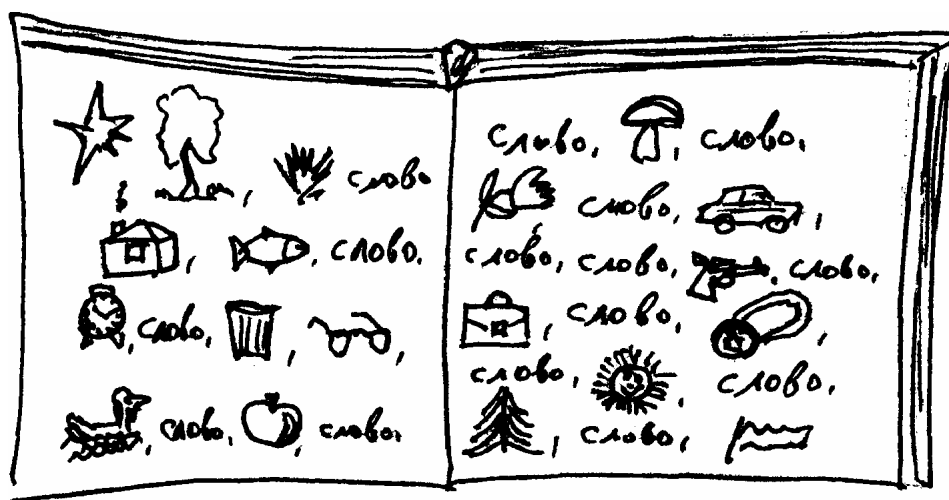 слово
слово.
слово,
слово, слово.
слово, слово.
слово,
слово, слово, слово,
слово,
слово, слово.
слово,